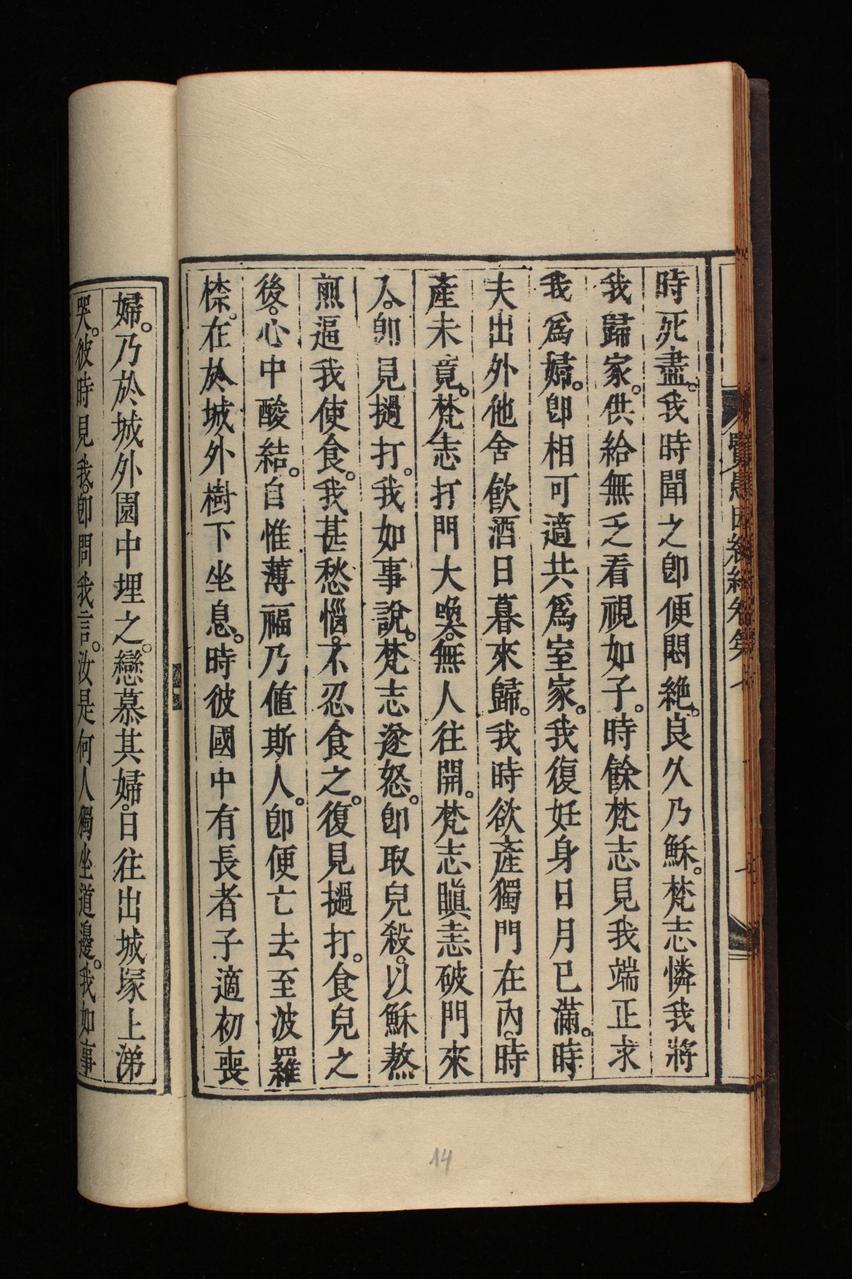 時死盡。我時聞之卽便悶絶。良久乃穌。梵志憐我將
我歸家。供給無乏看視如子。時餘梵志見我端正求
我爲婦。卽相可適共爲室家。我復妊身日月已滿。時
夫出外他舍飮酒日暮來歸。我時欲產獨門在內。時
產未竟。梵志打門大喚。無人往開。梵志瞋恚破門來
入。卽見撾打。我如事說。梵志遂怒。卽取兒殺。以穌熬
煎逼我使食。我甚愁惱。不忍食之。復見撾打。食兒之
後。心中酸結。自惟薄福乃値斯人。卽便亡去至波羅
㮈。在於城外樹下坐息。時彼國中有長者子適初喪
婦。乃於城外園中埋之。戀慕其婦。日往出城塚上涕
哭。彼時見我。卽問我言。汝是何人獨坐道邊。我如事
賢愚因緣經卷第
14